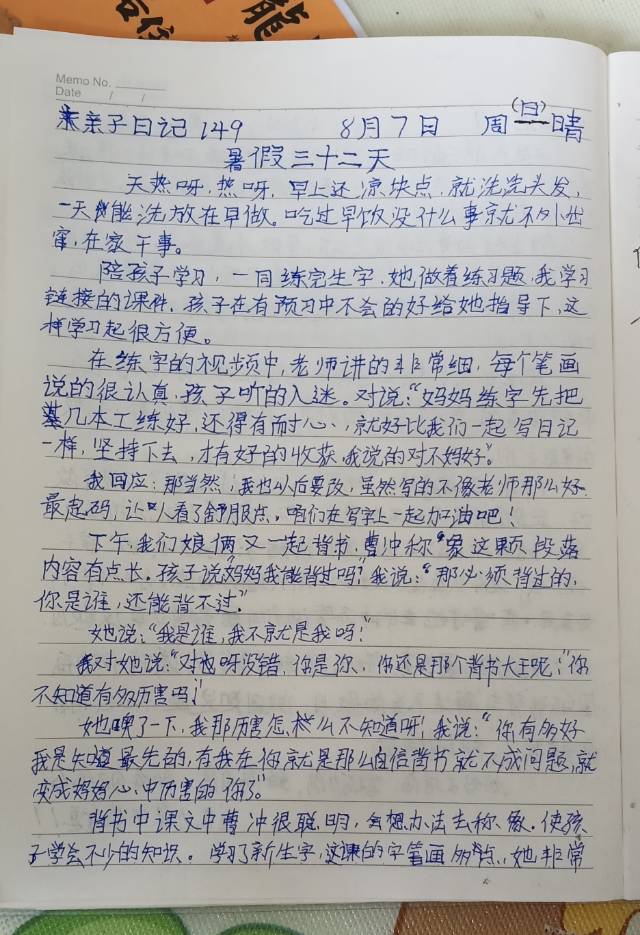 龍
Memo No.
Date / /
亲子日记 149 8月7日 周(日)晴
暑假三十二天
天热呀,热呀,早上还凉快点,就洗洗头发,
一天能洗放在早做。吃过早饭没什么事就不外出
窜,在家干事。
陪孩子学习,一同练完生字,她做着练习题,我学习
链接的课件,孩子在有预习中不会的好给她指导下,这
样学习起很方便。
在练字的视频中,老师讲的非常细,每个笔画
说的很认真,孩子听的入迷。对说:“妈妈练字先把
基几本工练好,还得有耐心,就好比我们一起写日记
一样,坚持下去,才有好的收获,我说的对不妈好”。
我回应:那当然,我也以后要改,虽然写的不像老师那么好,
最起码,让人看了舒服点,咱们在写字上一起加油吧!
下午,我们娘俩又一起背书,曹冲称“象这颗段落
内容有点长。孩子说妈妈我能背过吗?我说:“那必须背过的,
你是谁,还能背不过”
她说:“我是谁,我不就是我吗!”
我对她说:“对呀没错,你是你,你还是那个背书大王呢,“你
不知道有多历害吗!
她噗了一下,我那历害怎样么不知道呀!我说:“你有多好
我是知道最先的,有我在你就是那么自信背书就不成问题,就
变成妈妈心中历害的你了”。
背书中课文中曹冲很聪明,会想办法去称象。使孩
子学会不少的知识。学习了新生字,这课的字笔画多点,她非常